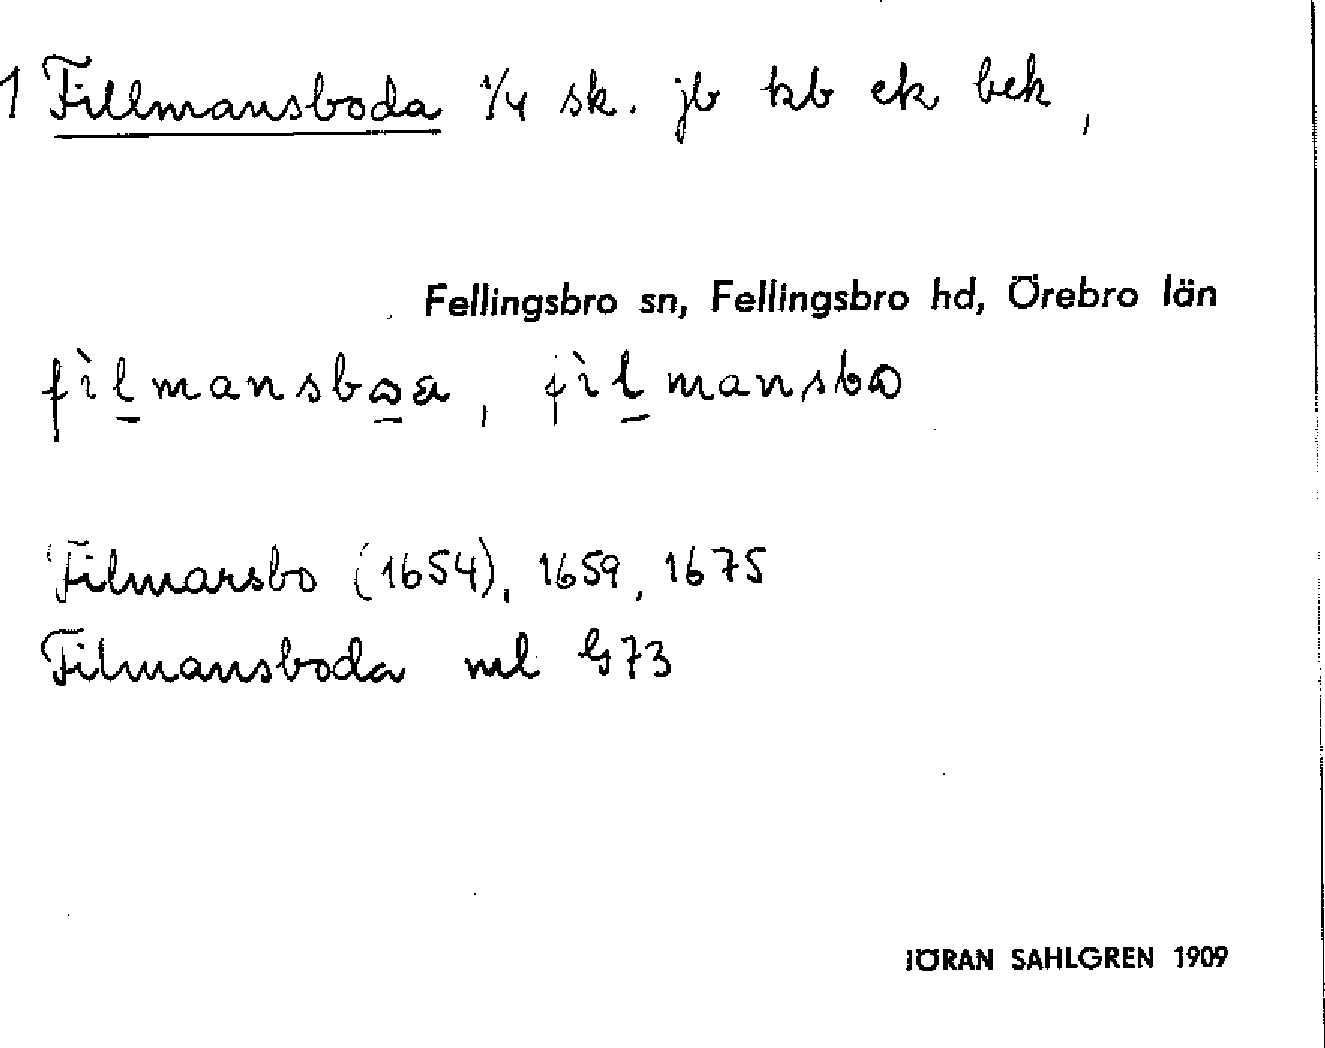 1 Fillmansboda 1/4 sk. jb kb ek bek,
Fellingsbro sn, Fellingsbro hd, Örebro län
fìlmansbωa, fìlmansbω
Filmansbo (1654), 1659, 1675
Filmansboda ml G73
JÖRAN SAHLGREN 1909